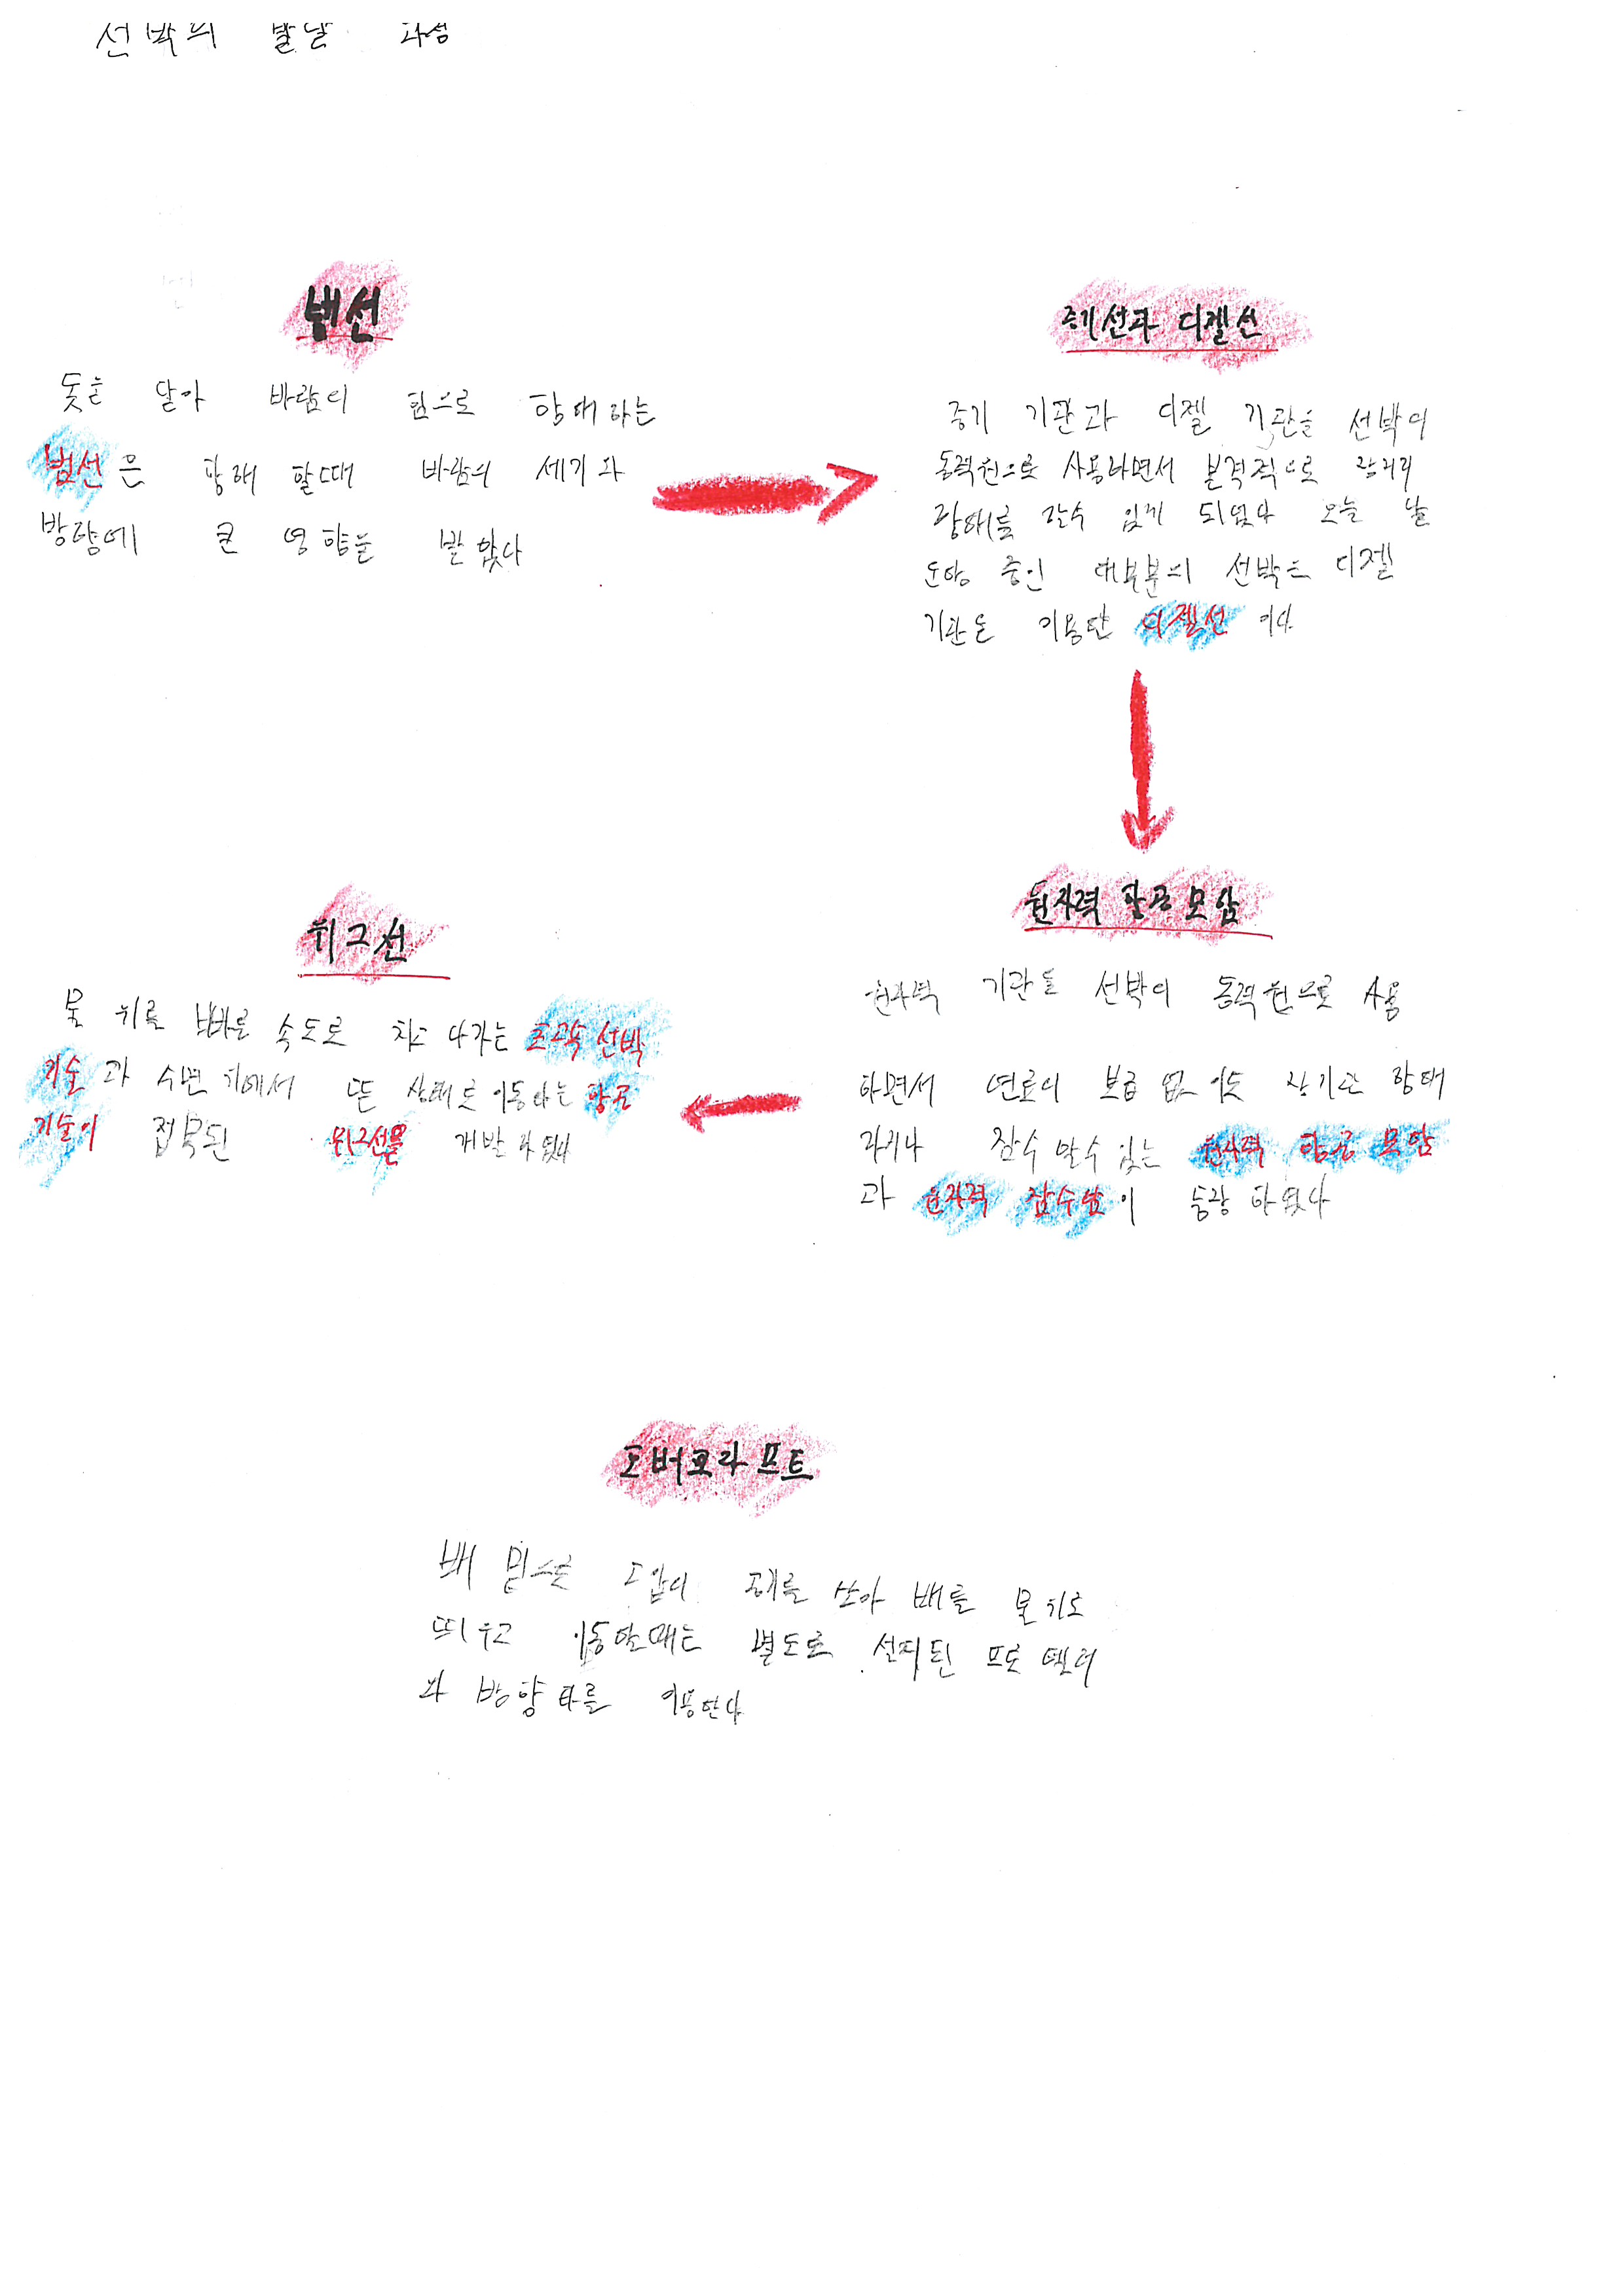 선박의 발달 과정
범선
돛을 달아 바람의 힘으로 항해하는
범선은 항해 할때 바람의 세기와
방향에 큰 영향을 받았다
증기선과 디젤선
증기 기관과 디젤 기관을 선박의
동력원으로 사용하면서 본격적으로 장거리
항해를 할수 있게 되었다 오늘 날
운항 중인 대부분의 선박은 디젤
기관을 이용한 디젤선 이다
원자력 항공모함
원자력 기관을 선박의 동력원으로 사용
하면서 연료의 보급 없이도 장기간 항해
하거나 잠수 할수 있는 원자력 항공 모함
과 원자력 잠수함이 등장 하였다
위그선
물 위를 빠른 속도로 치고 나가는 초고속 선박
기술과 수면 위에서 뜬 상태로 이동하는 항공
기술이 접목된 위그선을 개발 하였다
호버크라프트
배 밑으로 고압의 공기를 쏘아 배를 물 위로
띄우고 이동할때는 별도로 설치된 프로펠러
와 방향타를 이용한다